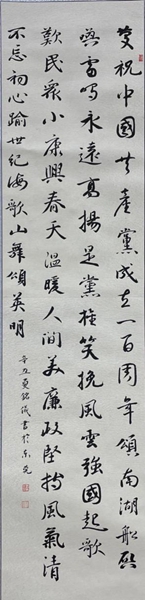 慶祝中國共產黨成立一百周年頌南湖船啟
雷鳴永遠高揚是黨笑挽風雲強國起歌
歎民眾小康興春天溫暖人間美廉政堅持風氣清
不忘初心踰世紀海歌山舞頌英明
辛丑夏銘誠書於東莞